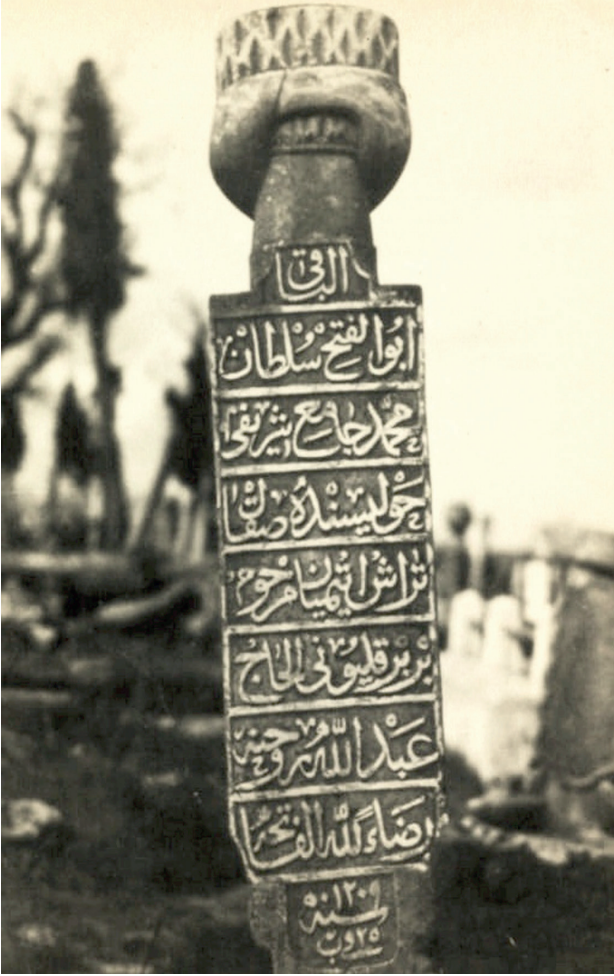 الباقى
ابو الفتح سلطان
محمد جامع شريفى
حوليسنده صقال
تراش ايتميان مرحوم
بربر قليونى الحاج
عبد الله روحنه
رضاء لله الفاتحه
سنة ١٢٠٩
٢٥